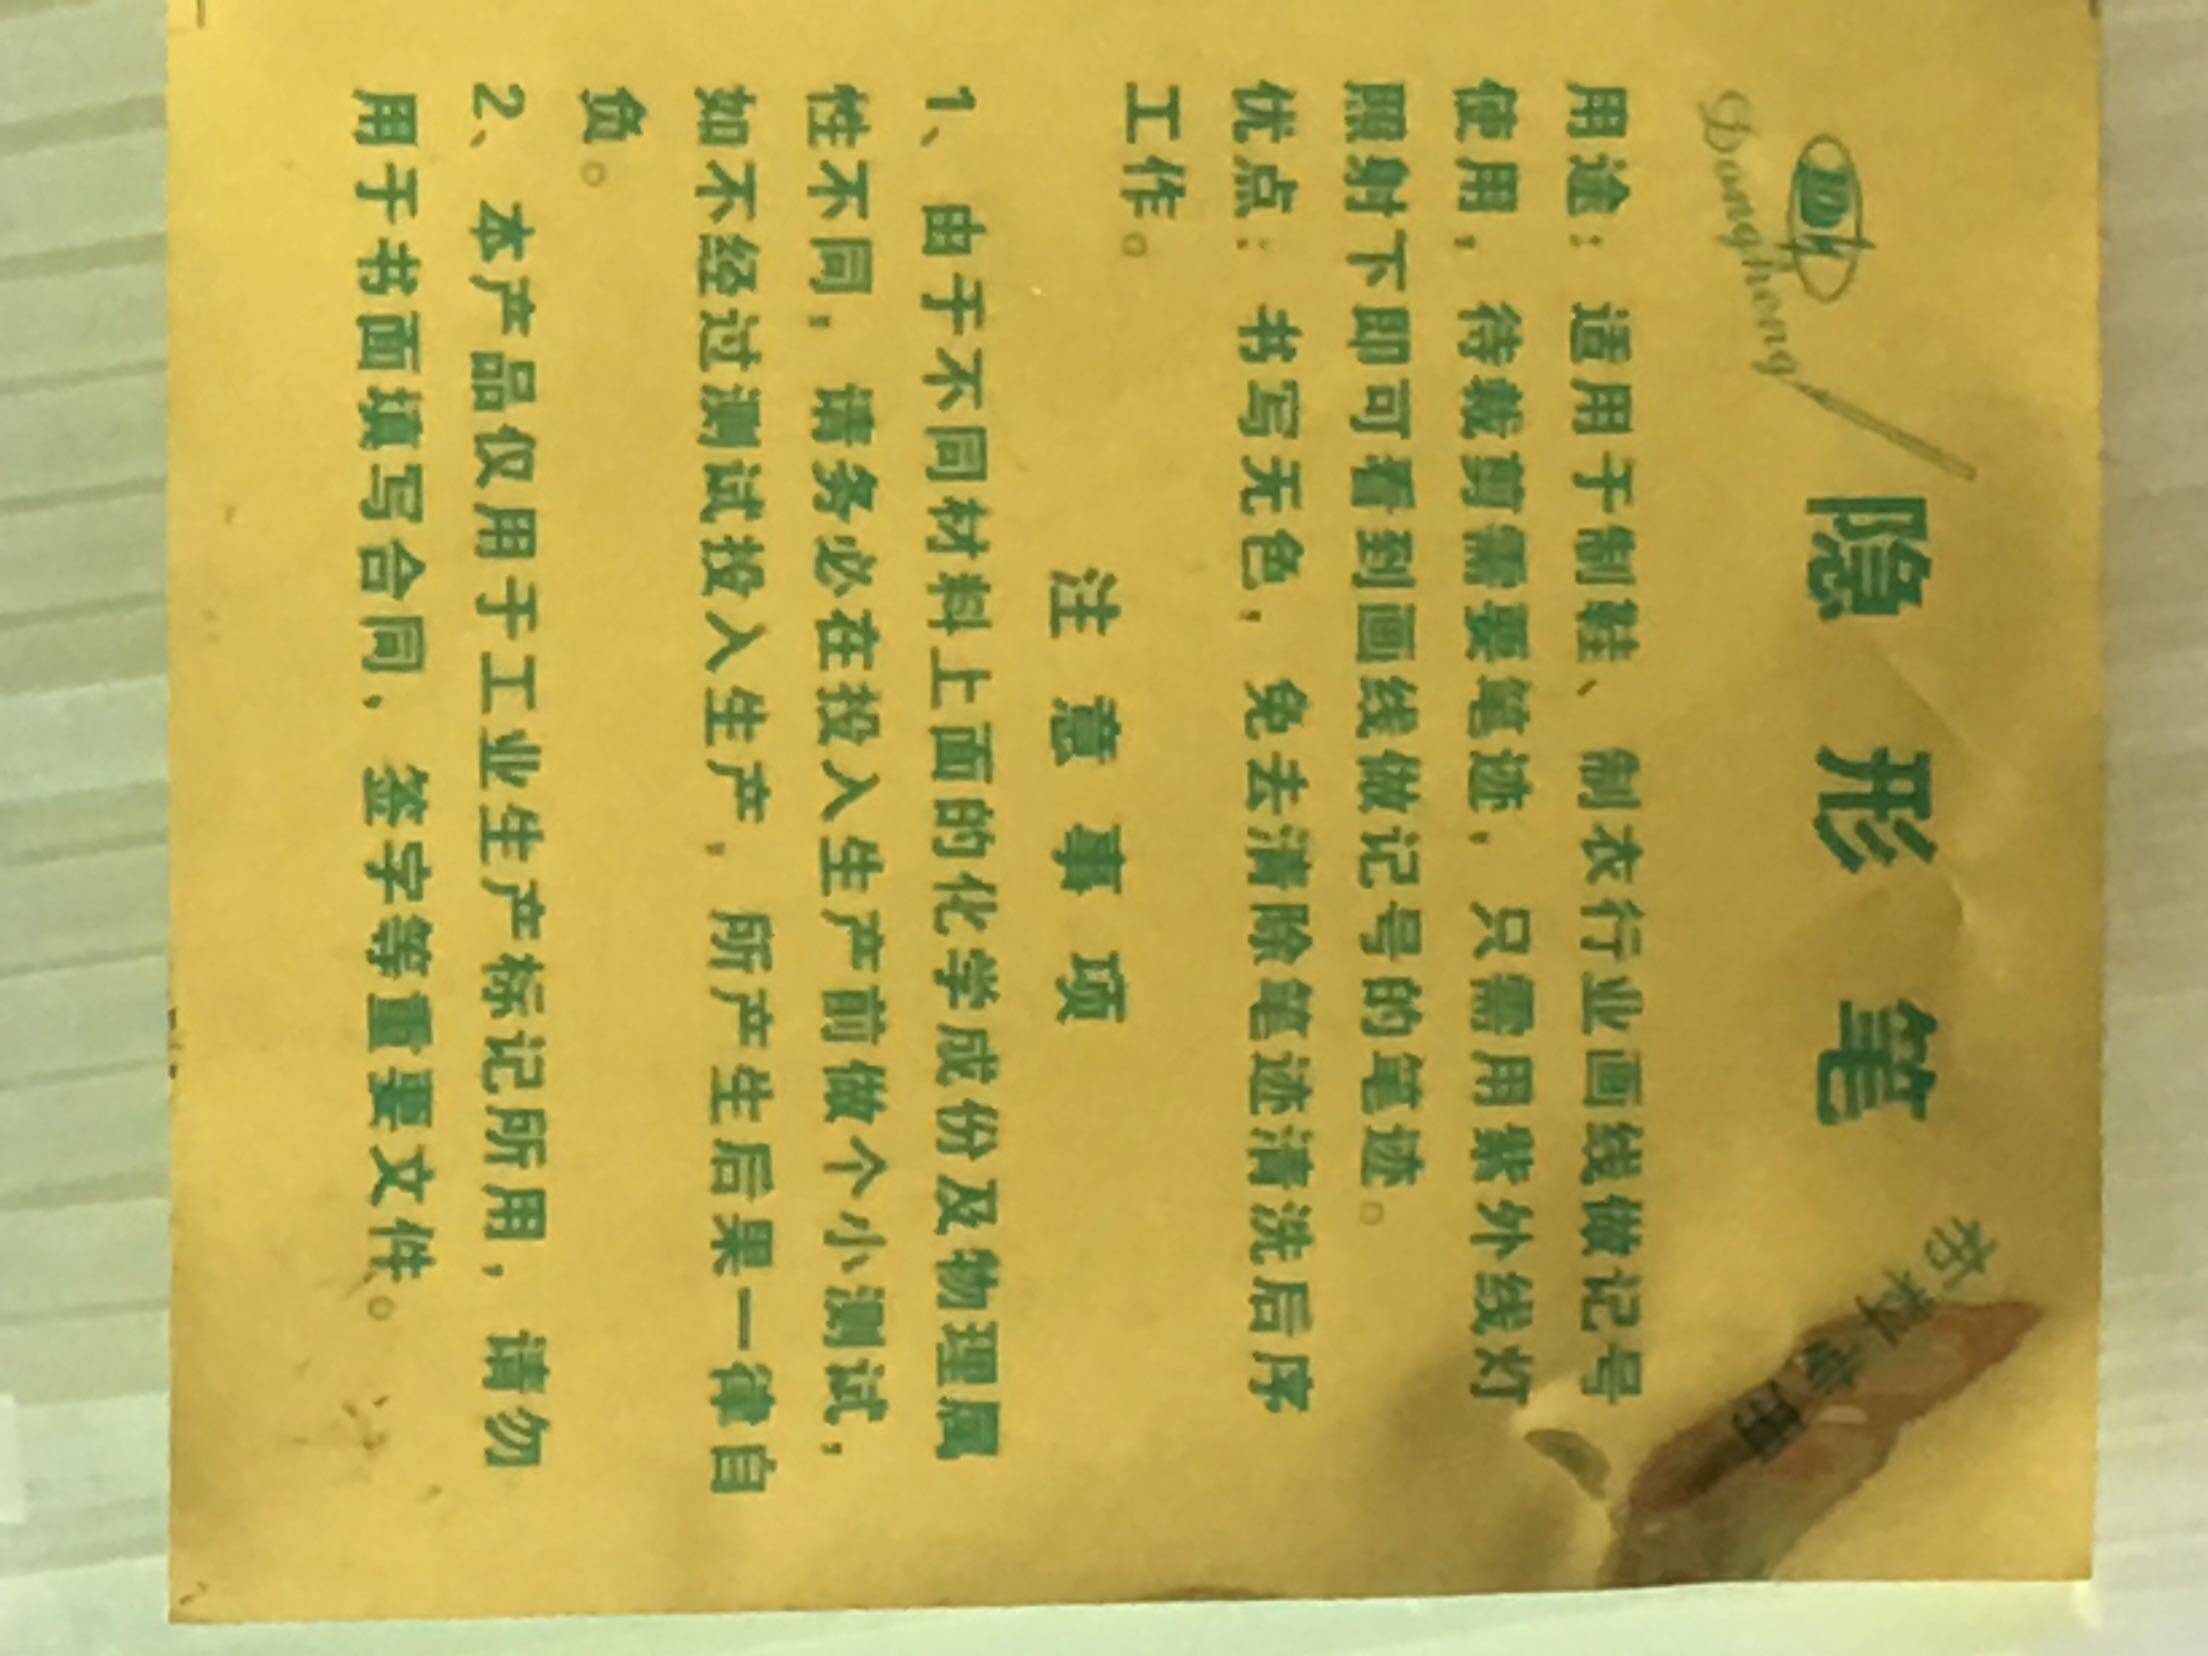 DH
Donghong
隐形笔
书杆专用
用途：适用于制鞋、制衣行业画线做记号
使用，待裁剪需要笔迹，只需用紫外线灯
照射下即可看到画线做记号的笔迹。
优点：书写无色，免去清除笔迹清洗后序
工作。
注意事项
1、由于不同材料上面的化学成份及物理属
性不同，请务必在投入生产前做个小测试，
如不经过测试投入生产，所产生后果一律自
负。
2、本产品仅用于工业生产标记所用，请勿
用于书面填写合同，签字等重要文件。